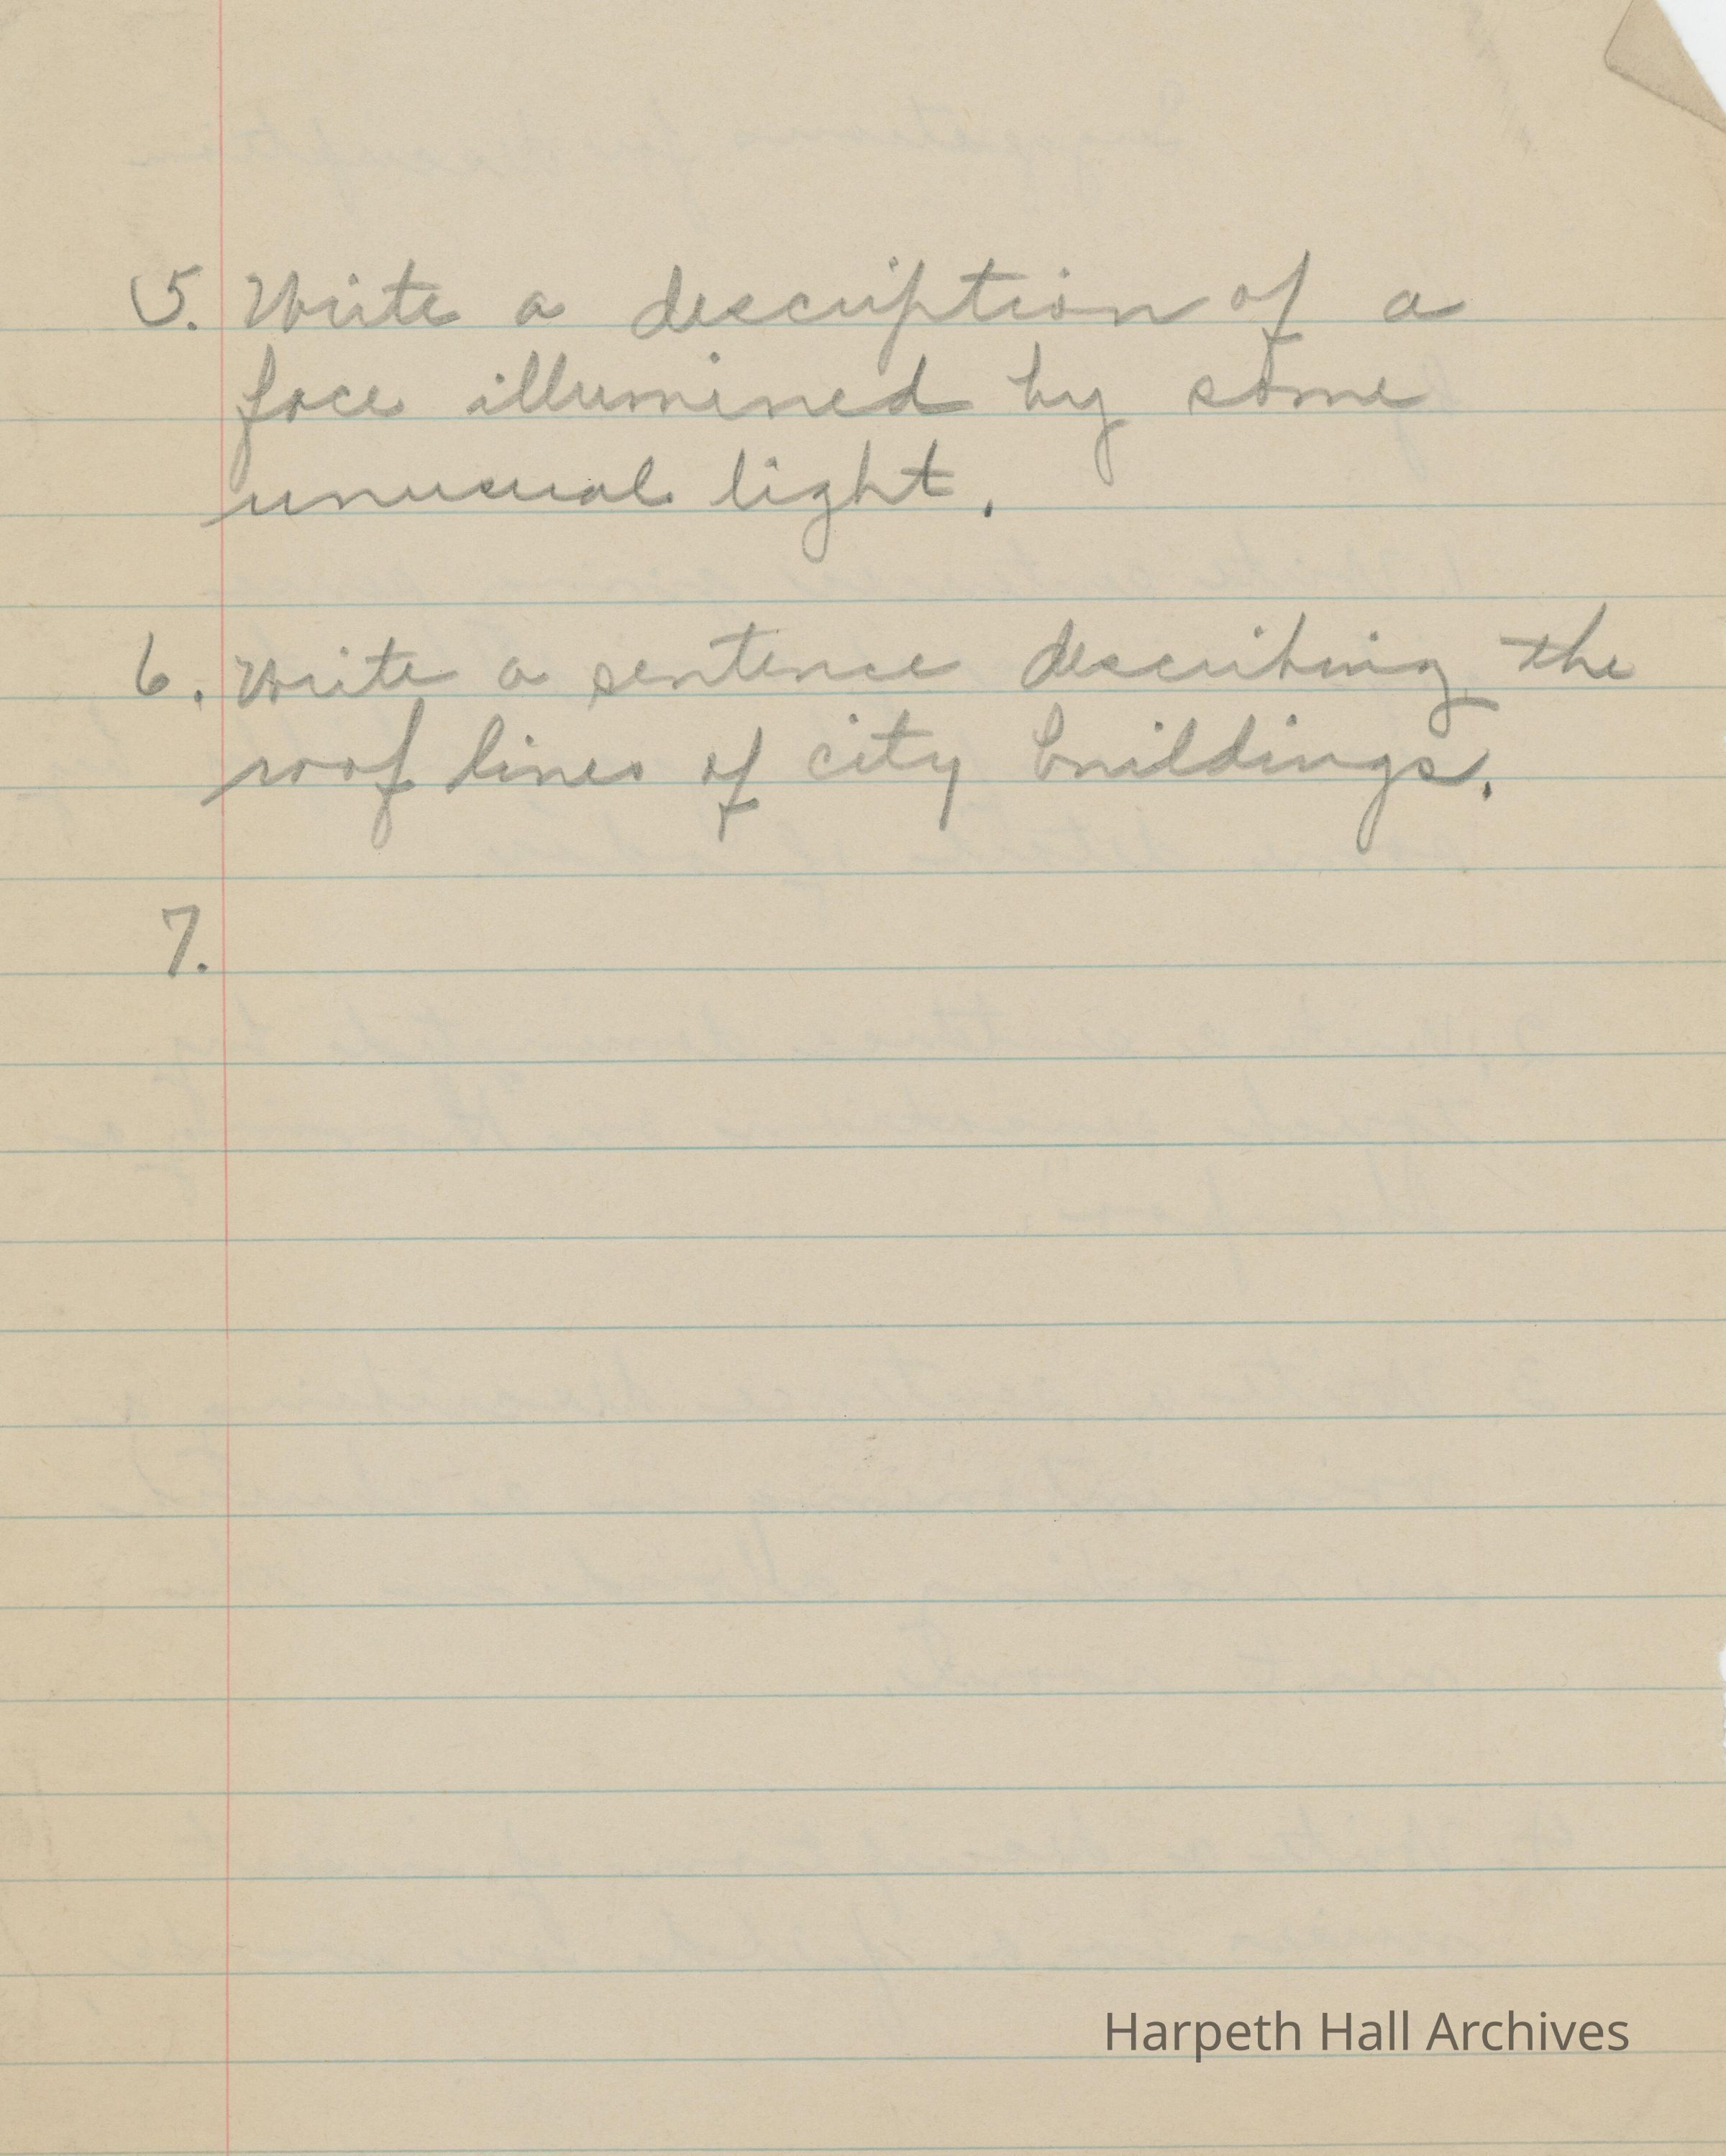 5. Write a description of a
face illumined by some
unusual light.
6. Write a sentence describing the
roof lines of city buildings.
7.
Harpeth Hall Archives